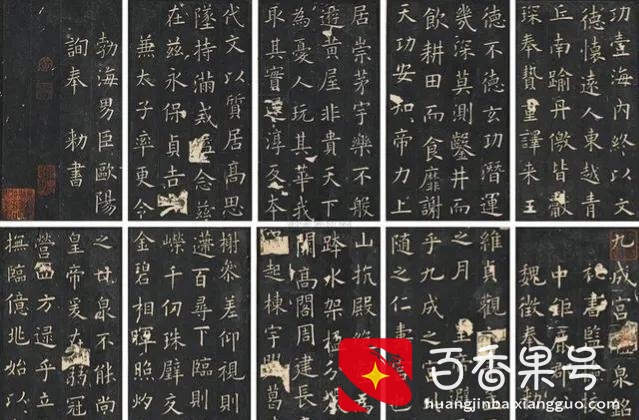 功臺海內終以文
德懷遠人東越青
丘南踰丹儌皆獻
琛奉贄重譯來王
德不德玄功潛運
幾深莫測鑿井而
飲耕田而食靡謝
天功安知帝力上
居崇茅宇樂不般
遊黃屋非貴天下
為憂人玩其華我
取其實還淳反本
代文以質居高思
墜持滿戒溢念茲
在茲永保貞吉
兼太子率更令
勃海男臣歐陽
詢奉 勑書
九成宮泉銘
祕書監
中鉅鹿郡
魏徵奉
維貞觀
之月
乎九成之
隨之仁壽
山抗殿為
跨水架楹分
闕高閣周建長
四起棟宇膠葛
榭參差仰視則
遰百尋下臨則
嶸千仞珠璧交
金碧相暉照灼
之甘泉不能尚
皇帝爰在弱冠
營四方逮乎立
撫臨億兆始以
百香果号
huangjinbaixiangguo.com